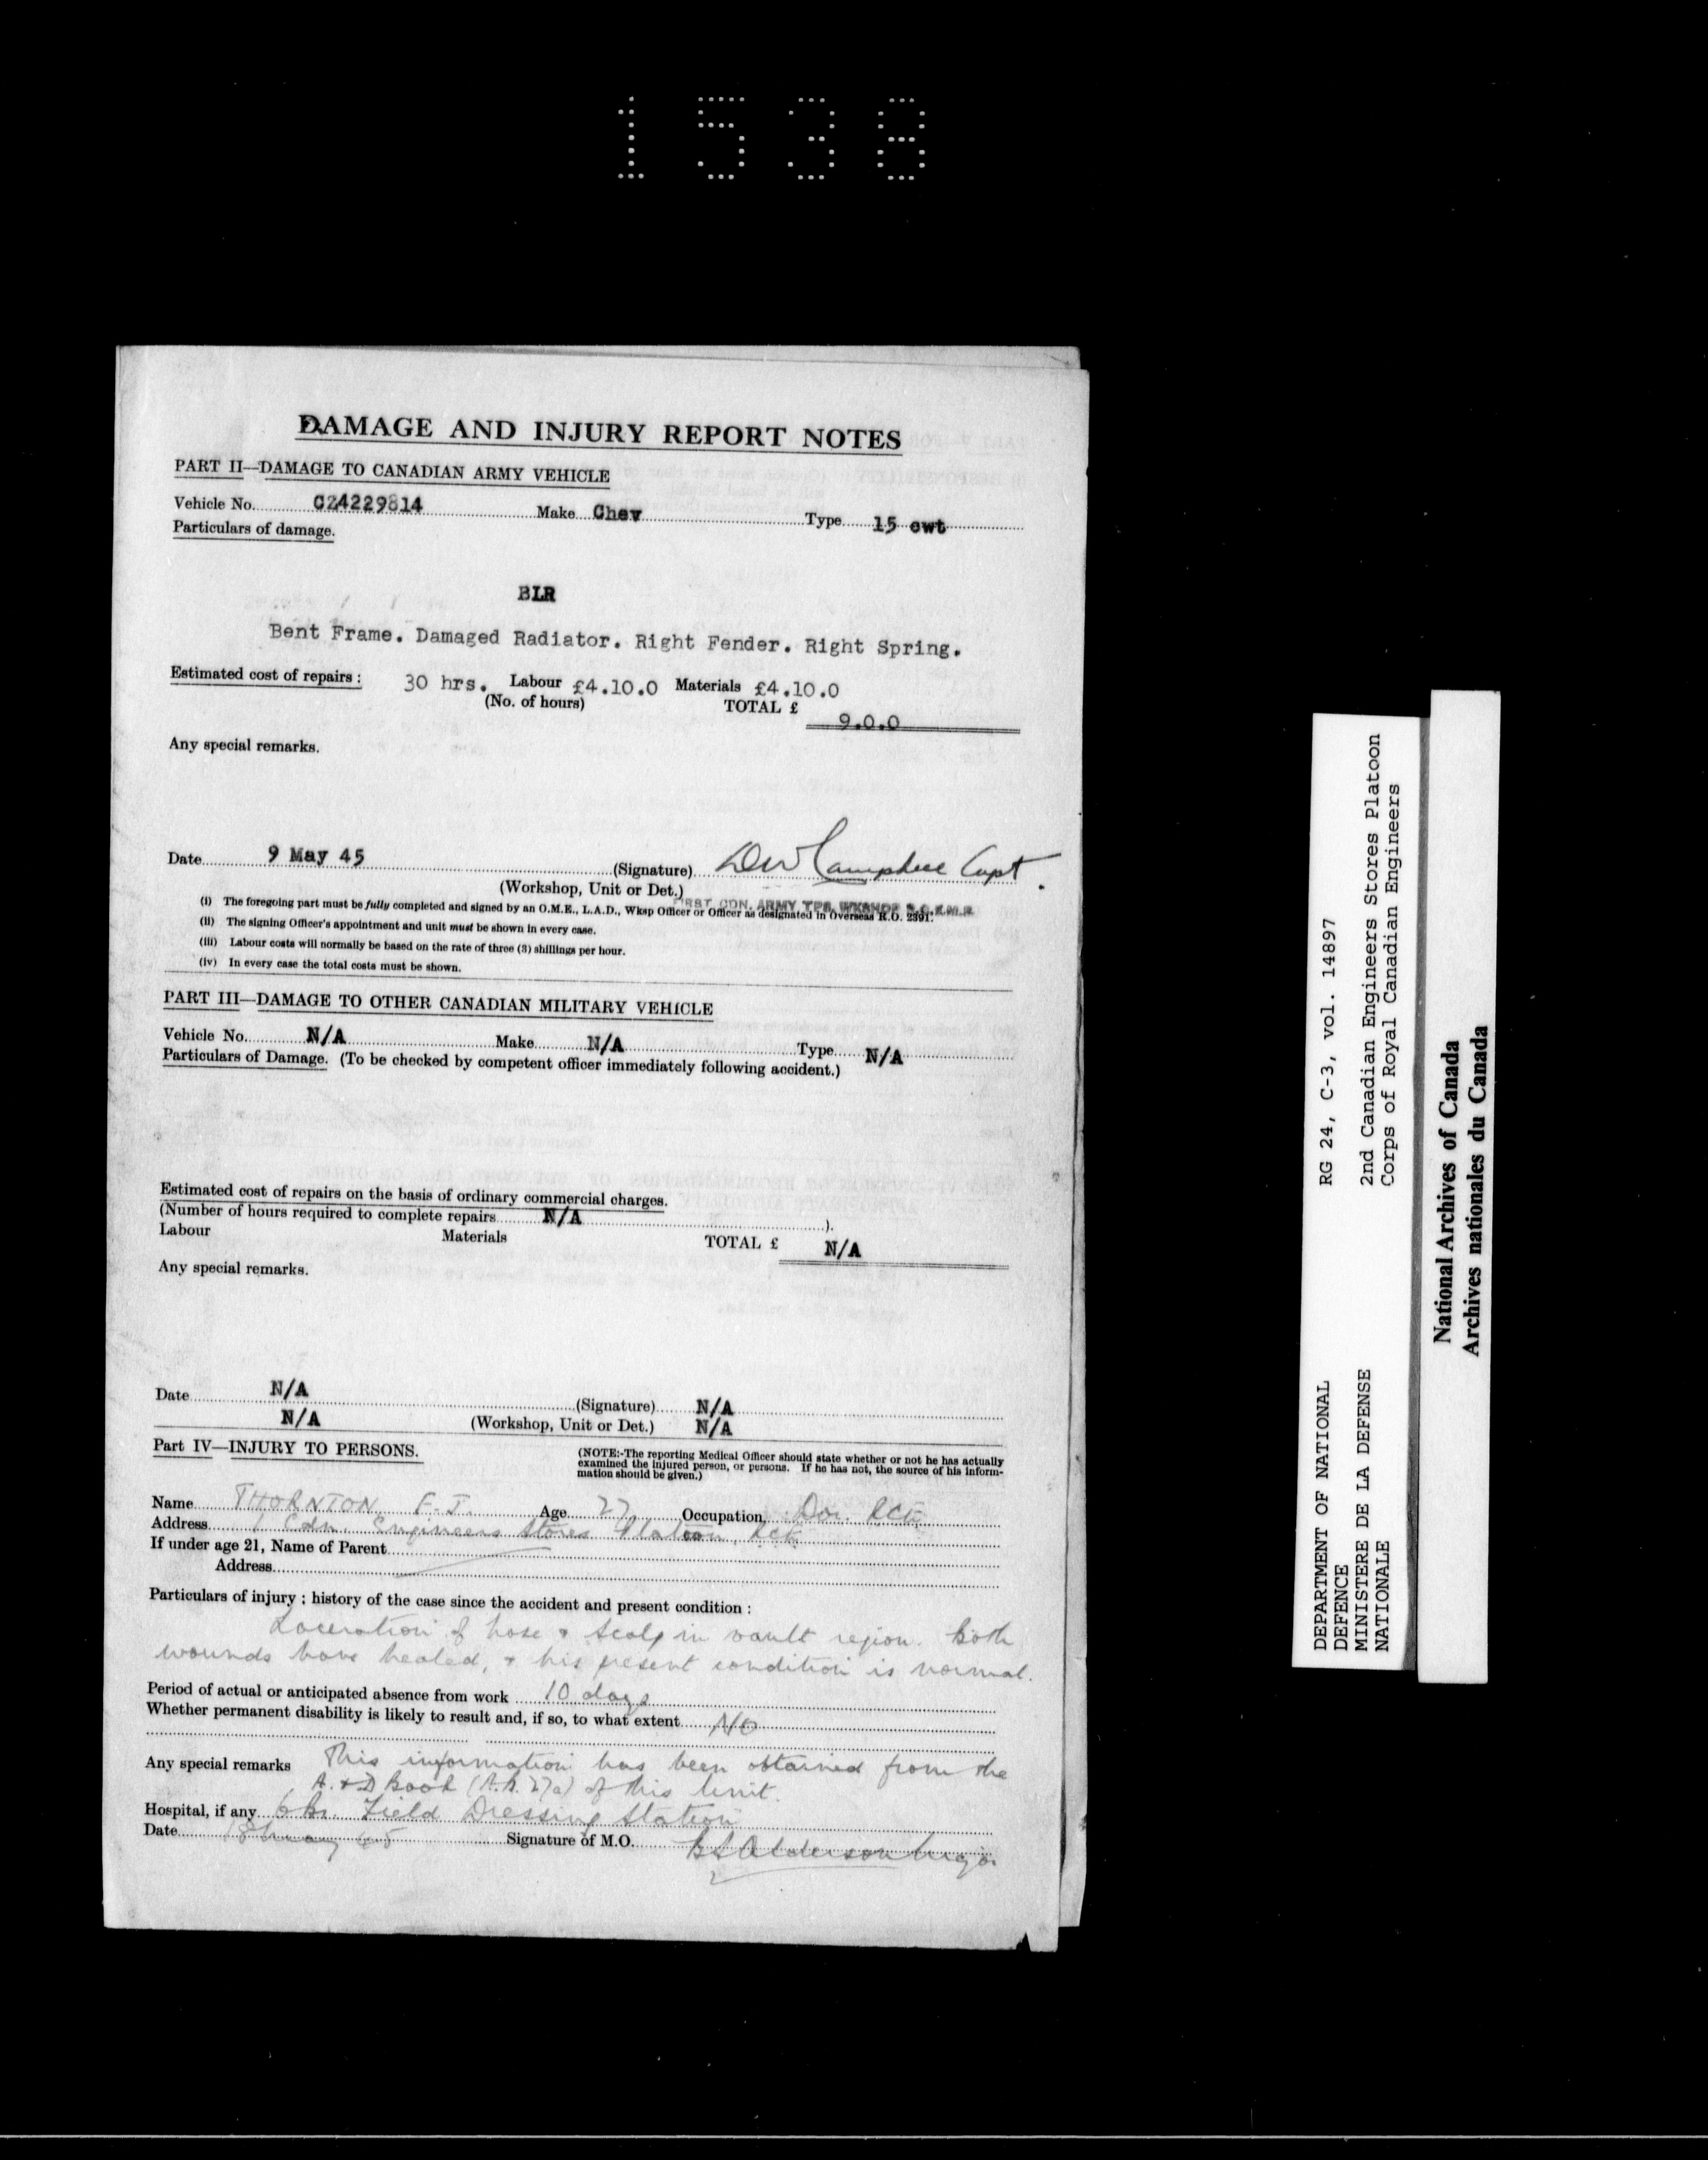 1538
DAMAGE AND INJURY REPORT NOTES
PART II—DAMAGE TO CANADIAN ARMY VEHICLE
Vehicle No. CZ4229814 Make Chev Type 15 cwt
Particulars of damage.
BLR
Bent Frame. Damaged Radiator. Right Fender. Right Spring.
Estimated cost of repairs : 30 hrs. Labour £4.10.0 Materials £4.10.0
(No. of hours) TOTAL £ 9.0.0
Any special remarks.
Date 9 May 45 (Signature) DW Campbell Capt.
(Workshop, Unit or Det.)
FIRST CDN. ARMY TPS. WKSHOP R.C.E.M.E.
(i) The foregoing part must be fully completed and signed by an O.M.E., L.A.D., Wksp Officer or Officer as designated in Overseas R.O. 2391.
(ii) The signing Officer's appointment and unit must be shown in every case.
(iii) Labour costs will normally be based on the rate of three (3) shillings per hour.
(iv) In every case the total costs must be shown.
PART III—DAMAGE TO OTHER CANADIAN MILITARY VEHICLE
Vehicle No. N/A Make N/A Type N/A
Particulars of Damage. (To be checked by competent officer immediately following accident.)
Estimated cost of repairs on the basis of ordinary commercial charges.
(Number of hours required to complete repairs N/A ).
Labour Materials TOTAL £ N/A
Any special remarks.
Date N/A (Signature) N/A
N/A (Workshop, Unit or Det.) N/A
Part IV—INJURY TO PERSONS.
(NOTE:-The reporting Medical Officer should state whether or not he has actually
examined the injured person, or persons. If he has not, the source of his inform-
mation should be given.)
Name THORNTON F.J. Age 27 Occupation Dvr. RCE
Address 1 Cdn. Engineers Stores Platoon, RCE
If under age 21, Name of Parent
Address
Particulars of injury ; history of the case since the accident and present condition :
Laceration of nose & scalp in vault region. Both
wounds have healed, & his present condition is normal.
Period of actual or anticipated absence from work 10 days
Whether permanent disability is likely to result and, if so, to what extent No
Any special remarks This information has been obtained from the
A. & D Book (A.B. 27a) of this Unit.
Hospital, if any 6 Br. Field Dressing Station
Date 18 May 45 Signature of M.O. Alderson Major
RG 24, C-3, vol. 14897
2nd Canadian Engineers Stores Platoon
Corps of Royal Canadian Engineers
DEPARTMENT OF NATIONAL
DEFENCE
MINISTERE DE LA DEFENSE
NATIONALE
National Archives of Canada
Archives nationales du Canada